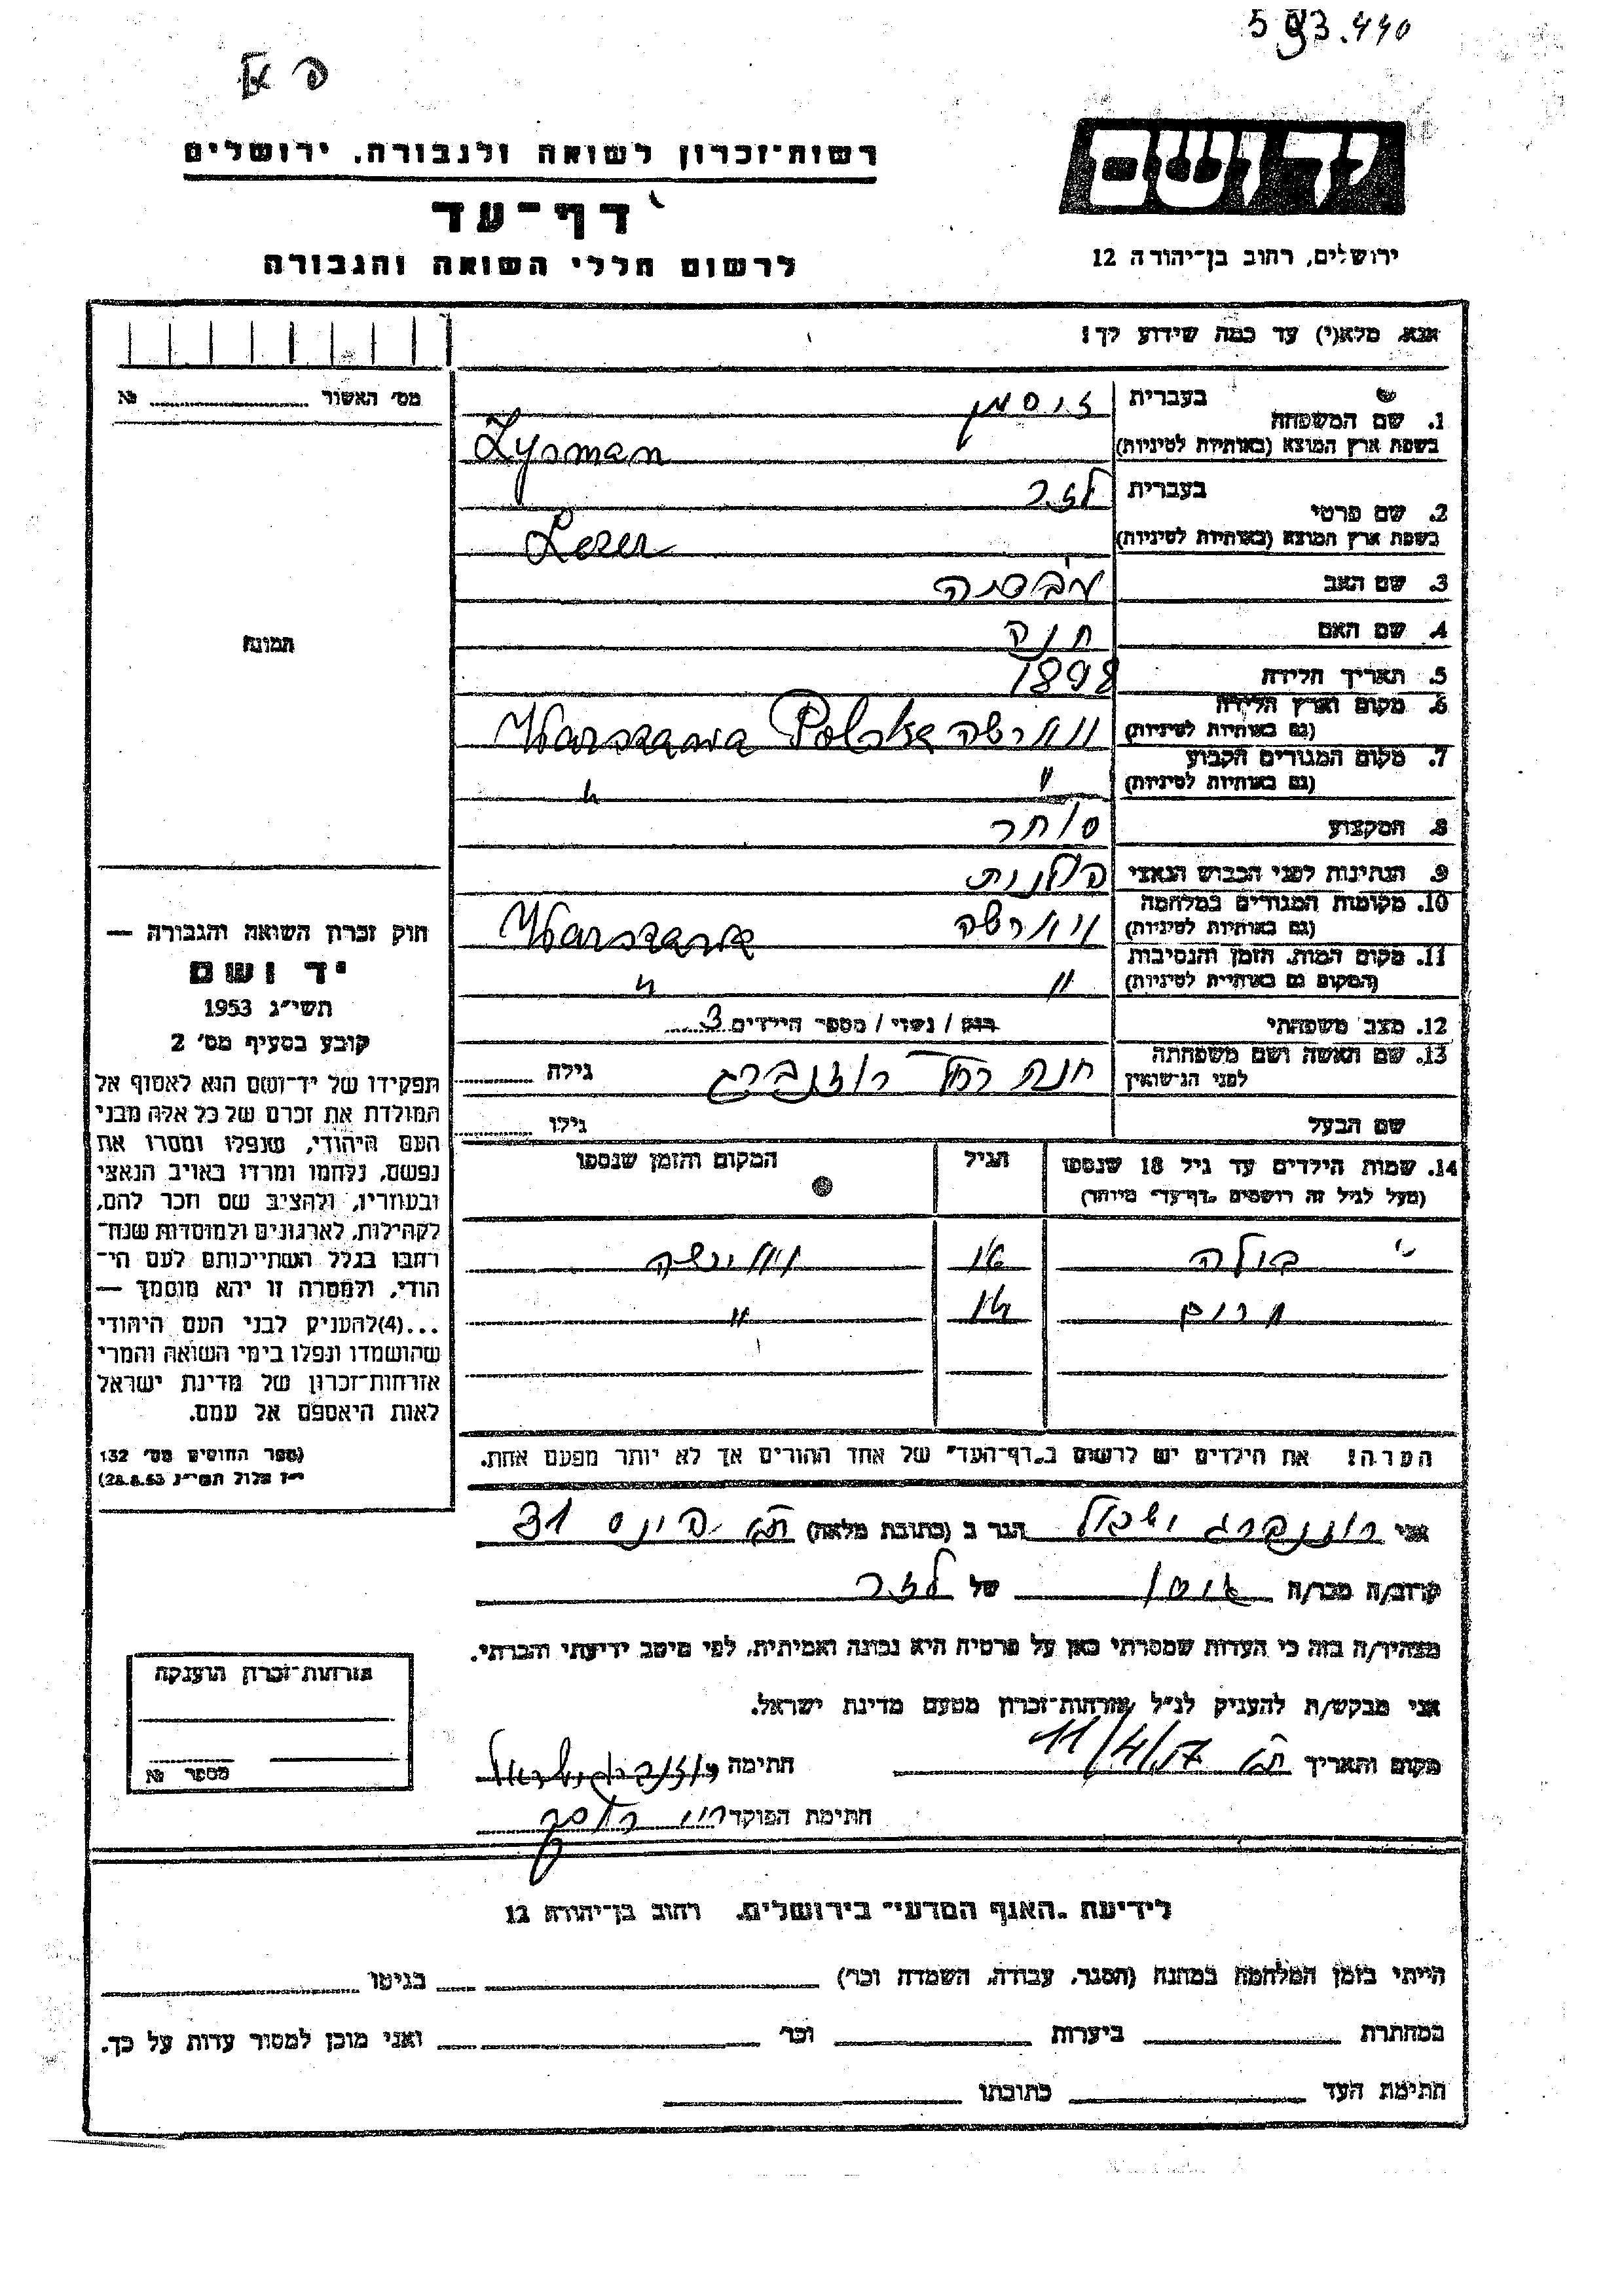 593.440
רשות־זכרון לשואה ולגבורה, ירושלים
דף־עד
לרשום חללי השואה והגבורה
יד ושם
ירושלים, רחוב בן־יהודה 12
אנא, מלא(י) עד כמה שידוע לך!
מס׳ האשור № 
1. שם המשפחה בעברית זיסמן
בשפת ארץ המוצא (באותיות לטיניות) Zysman
2. שם פרטי בעברית לזר
בשפת ארץ המוצא (באותיות לטיניות) Lezer
3. שם האב
4. שם האם חנה
5. תאריך הלידה 1898
6. מקום וארץ הלידה (גם באותיות לטיניות) ווארשה Warszawa Polska
7. מקום המגורים הקבוע (גם באותיות לטיניות) " "
8. המקצוע סוחר
9. הנתינות לפני הכבוש הנאצי פולנית
10. מקומות המגורים במלחמה (גם באותיות לטיניות) ווארשה Warszawa
11. מקום המות, הזמן והנסיבות (המקום גם באותיות לטיניות) " "
12. מצב משפחתי רווק / נשוי / מספר הילדים 3
13. שם האשה ושם משפחתה לפני הנישואין חנה רחל רוזנברג גילה
שם הבעל גילו
14. שמות הילדים עד גיל 18 שנספו הגיל המקום והזמן שנספו
(מעל לגיל זה רושמים "דף־עד" מיוחד)
הערה! את הילדים יש לרשום ב"דף־העד" של אחד ההורים אך לא יותר מפעם אחת.
תמונה
חוק זכרון השואה והגבורה —
יד ושם
תשי״ג 1953
קובע בסעיף מס׳ 2
תפקידו של יד־ושם הוא לאסוף אל
המולדת את זכרם של כל אלה מבני
העם היהודי, שנפלו ומסרו את
נפשם, נלחמו ומרדו באויב הנאצי
ובעוזריו, ולהציב שם וזכר להם,
לקהילות, לארגונים ולמוסדות שנח־
רבו בגלל השתייכותם לעם הי־
הודי, ולמטרה זו יהא מוסמך —
...(4) להעניק לבני העם היהודי
שהושמדו ונפלו בימי השואה והמרי
אזרחות־זכרון של מדינת ישראל
לאות היאספם אל עמם.
(ספר החוקים מס׳ 132
י״ז אלול תשי״ג 28.8.53)
אני רוזנברג הגר ב (כתובת מלאה) ת״א פינס 31
קרוב/ה מכר/ה של לזר
מצהיר/ה בזה כי העדות שמסרתי כאן על פרטיה היא נכונה ואמיתית, לפי מיטב ידיעתי והכרתי.
אני מבקש/ת להעניק לנ״ל אזרחות־זכרון מטעם מדינת ישראל.
מקום ותאריך ת״א 11/4/57 חתימה
חתימת הפוקד
אזרחות־זכרון הוענקה
מספר №
לידיעת "האגף המדעי" בירושלים, רחוב בן־יהודה 12
הייתי בזמן המלחמה במחנה (הסגר, עבודה, השמדה וכו׳) בגיטו
במחתרת ביערות וכו׳ ואני מוכן למסור עדות על כך.
חתימת העד כתובתו